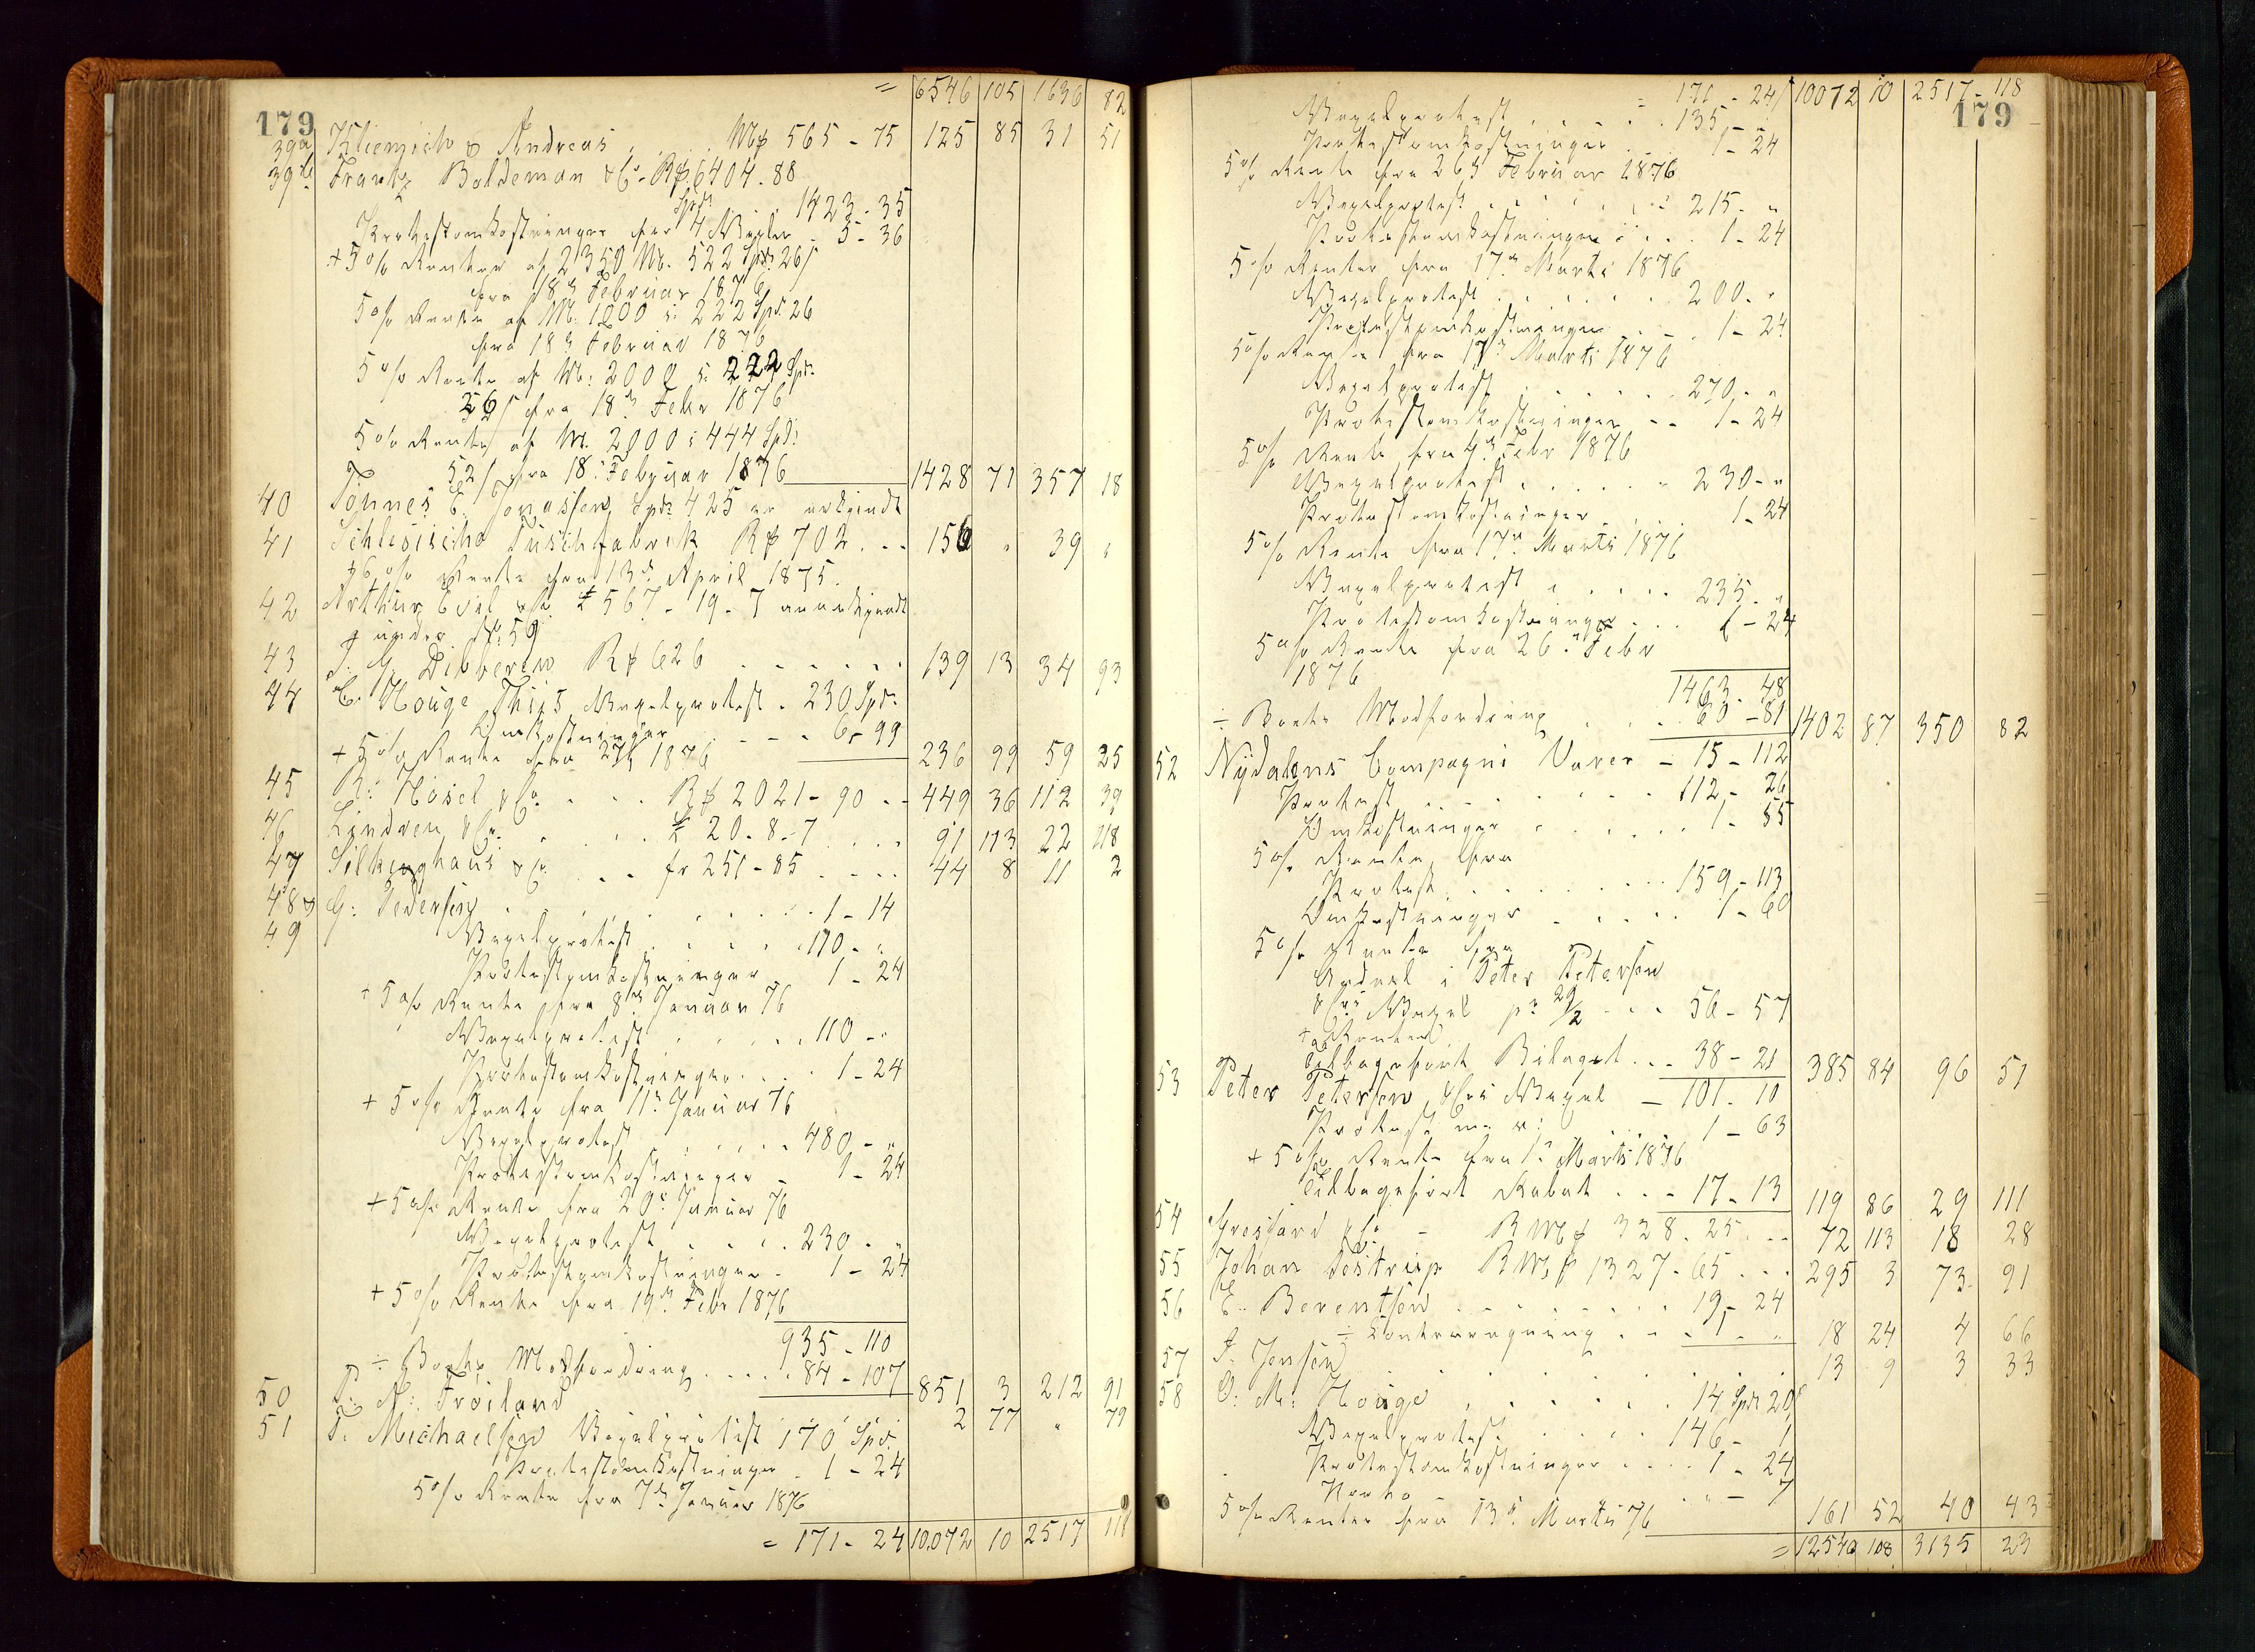 = 6546 105 1636 82
179
39a Kliemsch & Andreas . . M₰ 565 - 75 125 85 31 51
39b Frantz Boldeman & Co. R₰ 6404. 88
Spd. . . 1423 - 35
Protestomkostninger for 4 Vexler 5 - 36
+ 5 % Renter af 2350 M. 522 Spd. 26/
fra 18d Februar 1876
5 % Rente af M. 1000 : 222 Spd. 26
fra 18d Februar 1876
5 % Rente af M. 2000 : 222 Spd.
26/ fra 18d Febr 1876
5 % Rente af M. 2000 : 444 Spd.
52/ fra 18. Februar 1876 1428 71 357 18
40 Tönnes E. Jonassen Spd. 425 er erkjendt
41 Schlesische Tuschfabrik R₰ 702 . . - 156 " 39 "
+ 6 % Rente fra 13d April 1875.
42 Arthur & Co £ 567 - 19 - 7
under No. 59
43 R₰ 626 . . . . . . 139 13 34 93
44 C. Houge Thiis Vexelprotest . 230 Spd.
Omkostninger . . - - . 6 - 99
+ 5 % Rente fra 1876 236 99 59 25
45 R. Hösel & Co. . . . R₰ 2021 - 90 - - 449 36 112 39
46 Lindren & Co. . . . £ 20 - 8 - 7 . . . . 91 113 22 118
47 Silkinghaus & Co . . - fr 251 - 85 . . . . 44 8 11 2
48 & G. Pedersen . . . . . . . . . 1 - 14
49 Vexelprotest . . . . . 110 - "
Protestomkostninger . 1 - 24
+ 5 % Rente fra 8d Januar 76
Vexelprotest . . . . . 110 - "
Protestomkostninger . . . . 1 - 24
+ 5 % Rente fra 11d Januar 76
Vexelprotest . . . . . 480 - "
Protestomkostninger - 1 - 24
+ 5 % Rente fra 20d Januar 76
Vexelprotest . . . . 230 - "
Protestomkostninger - 1 - 24
+ 5 % Rente fra 19d Febr 1876
935 - 110
÷ Boets Modfordring . . . . 84 - 107 851 3 212 91
50 P. N. Tröiland 2 77 " 79
51 T. Michaelsen Vexelprotest 170 Spd.
Protestomkostninger . 1 - 24
5 % Rente fra 7d Januar 1876
= 171 - 24 10,072 10 2517 118
= 171 - 24/ 10072 10 2517 - 118
179
Vexelprotest . . . . . 135 "
Protestomkostninger . . 1 - 24
5 % Rente fra 26d Februar 1876
Vexelprotest . . . . . . 215 - "
Protestomkostninger . . . 1 - 24
5 % Renter fra 17d Marts 1876
Vexelprotest . . . . . . 200 - "
Protestomkostninger . . - 1 - 24
5 % Rente fra 17d Marts 1876
Vexelprotest . . . . . . 270 - "
Protestomkostninger - - 1 - 24
5 % Rente fra 4d Febr 1876
Vexelprotest . . . . . . 230 - "
Protestomkostninger . . . 1 - 24
5 % Rente fra 17d Marts 1876
Vexelprotest . . . . . 235 - "
Protestomkostninger . . . 1 - 24
5 % Rente fra 26d Febr
1876
1463 - 48
÷ Boets Modfordring . . . 60 - 81 1402 87 350 82
52 Nydalens Compagni Varer - 15 - 112
Protest . . . . . . . 112 - 26
Omkostninger . . . . . . 1 - 55
5 % Rente fra
Protest . . . . . . . 159 - 113
Omkostninger - . . . . 1 - 60
5 % Rente fra
Andeel i Peter Petersen
& Co's Vexel pr 29/2 - . . 56 - 57
+ Renter
tilbageført Bilaget . . - 38 - 21 385 84 96 51
53 Peter Petersen & Co's Vexel - 101 - 10
Protest m. v. . . . 1 - 63
+ 5 % Rente fra 1d Marts 1876
Tilbageført Rabat . . - 17 - 13 119 86 29 111
54 & Co. - R M₰ 328. 25 . - - 72 113 18 28
55 Johan R M₰ 1327 - 65 . . . 295 3 73 91
56 E. Berentsen . - . - . . . 19 - 24
÷ Contraregning . . - 1 - " 18 24 4 66
57 J. Jensen . . . . . . . . 13 9 3 33
58 O. M. Houge . . . . . . 14 Spd 20/
Vexelprotest . . . . 146 - 1
Protestomkostninger . . . . 1 - 24
Porto - . " - 7
5 % Renter fra 13d Marts 76 161 52 40 43
= 12540 108 3135 23